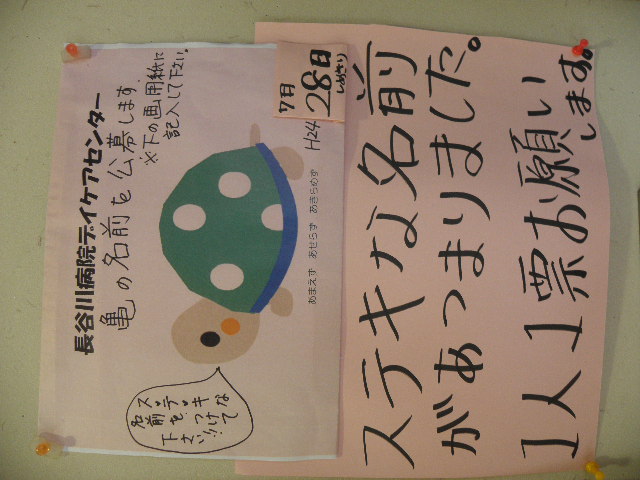 長谷川病院デイケアセンター
亀の名前を公募します。
※下の画用紙に
記入して下さい。
7月
28日
しめきり
H24
ステキな
名前を
つけて
下さい!!
あまえず あせらず あきらめず
ステキな名前
があつまりました。
1人1票お願い
します。